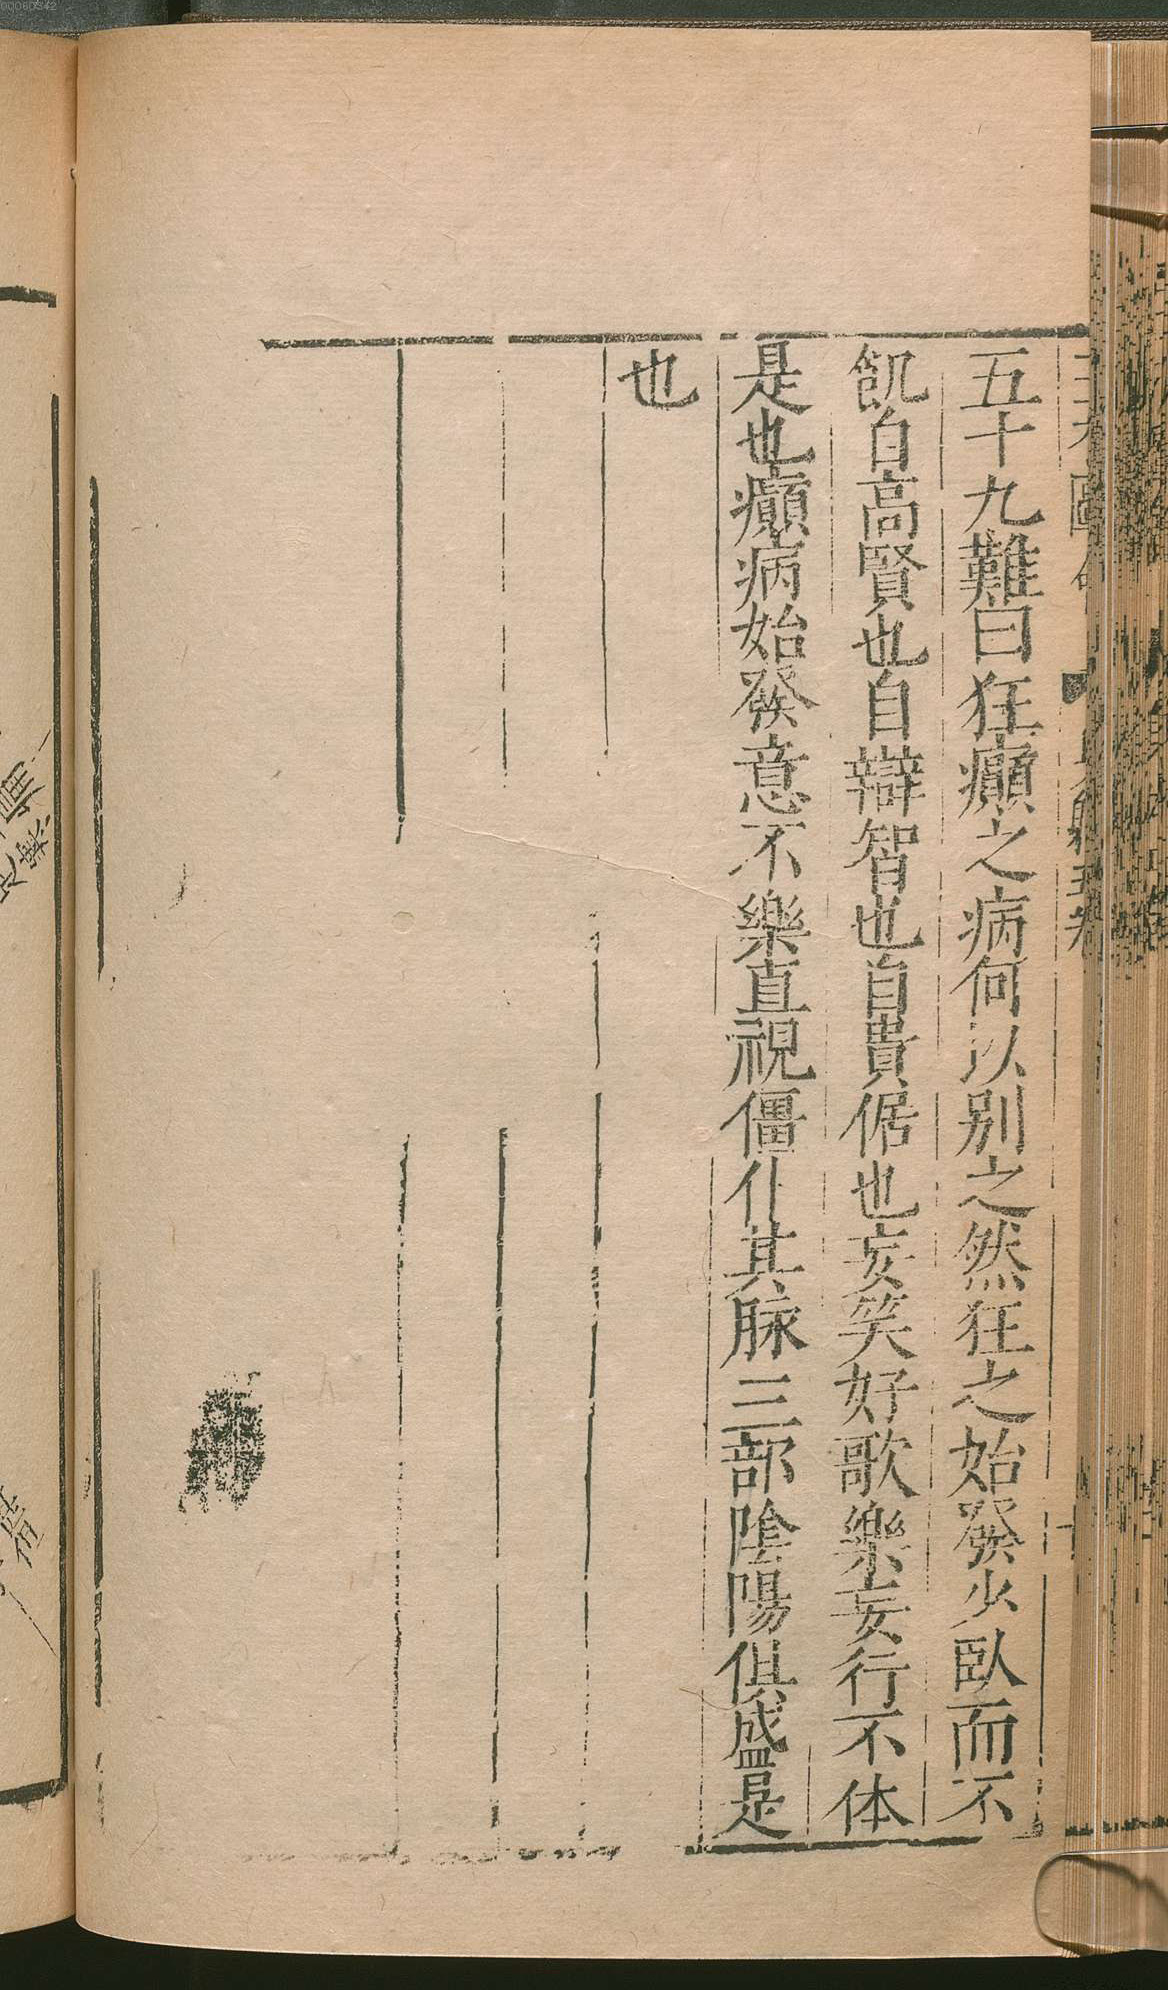 五十九難曰狂癲之病何以別之然狂之始發少臥而不
飢自高賢也自辯智也自貴倨也妄笑好歌樂妄行不休
是也癲病始發意不樂直視僵仆其脉三部陰陽俱盛是
也
00060342